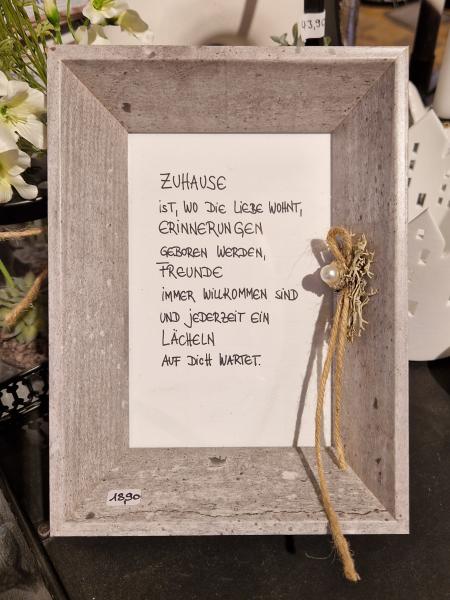 03,90
ZUHAUSE
iST, WO DIE LIEBE WOHNT,
ERINNERUNGEN
GEBOREN WERDEN,
FREUNDE
iMMER WILLKOMMEN SIND
UND JEDERZEIT EIN
LÄCHELN
AUF DICH WARTET.
18,90